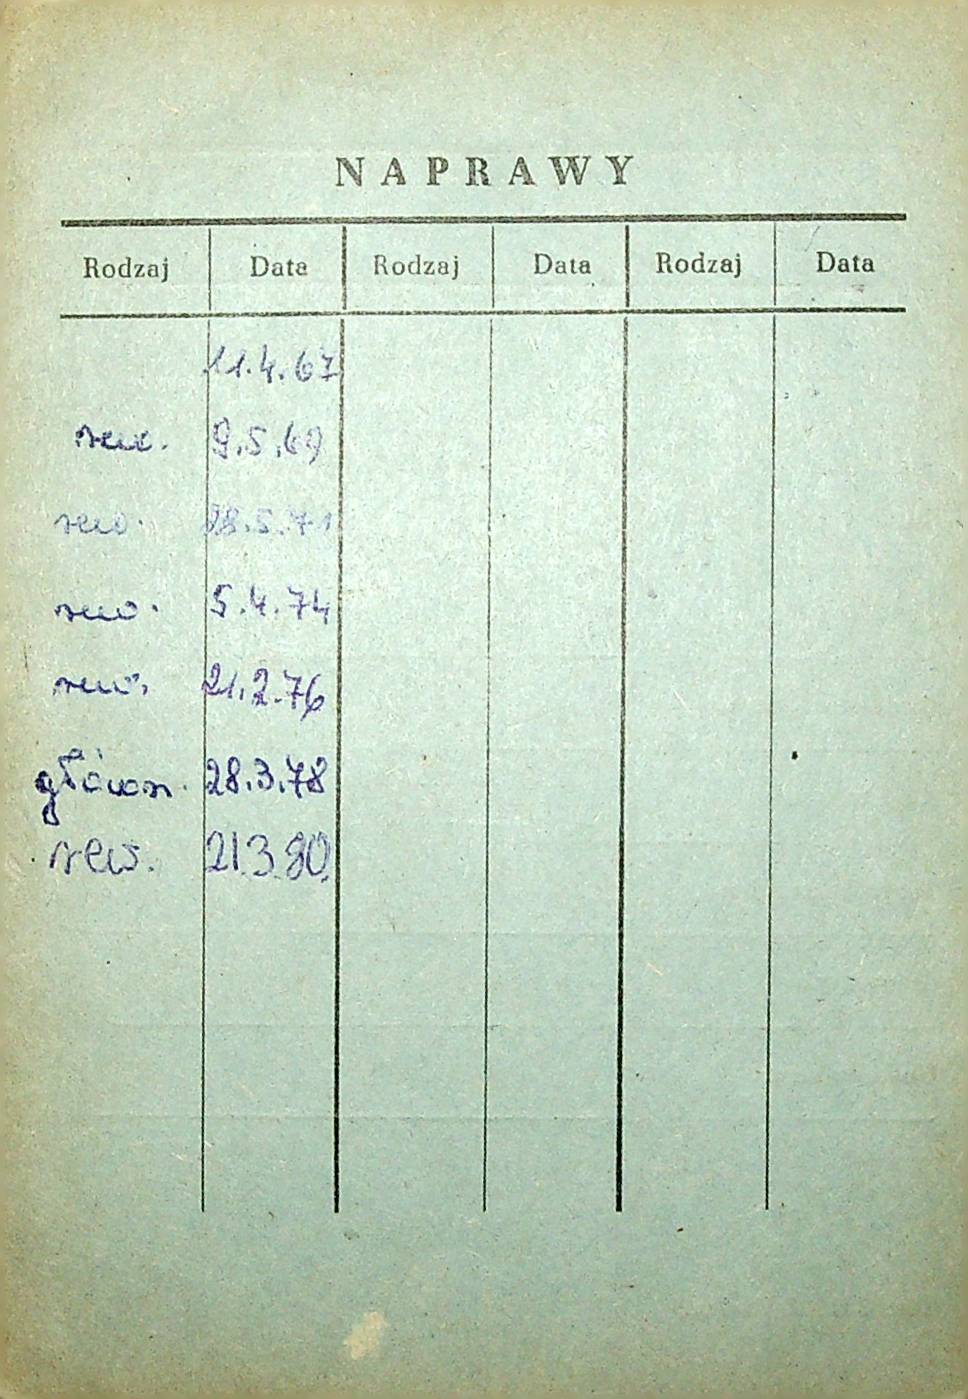 NAPRAWY
Rodzaj Data Rodzaj Data Rodzaj Data
11.4.67
rew. 9.5.69
rew. 28.5.71
rew. 5.4.74
rew. 21.2.76
główn. 28.3.78
rew. 21.3.80